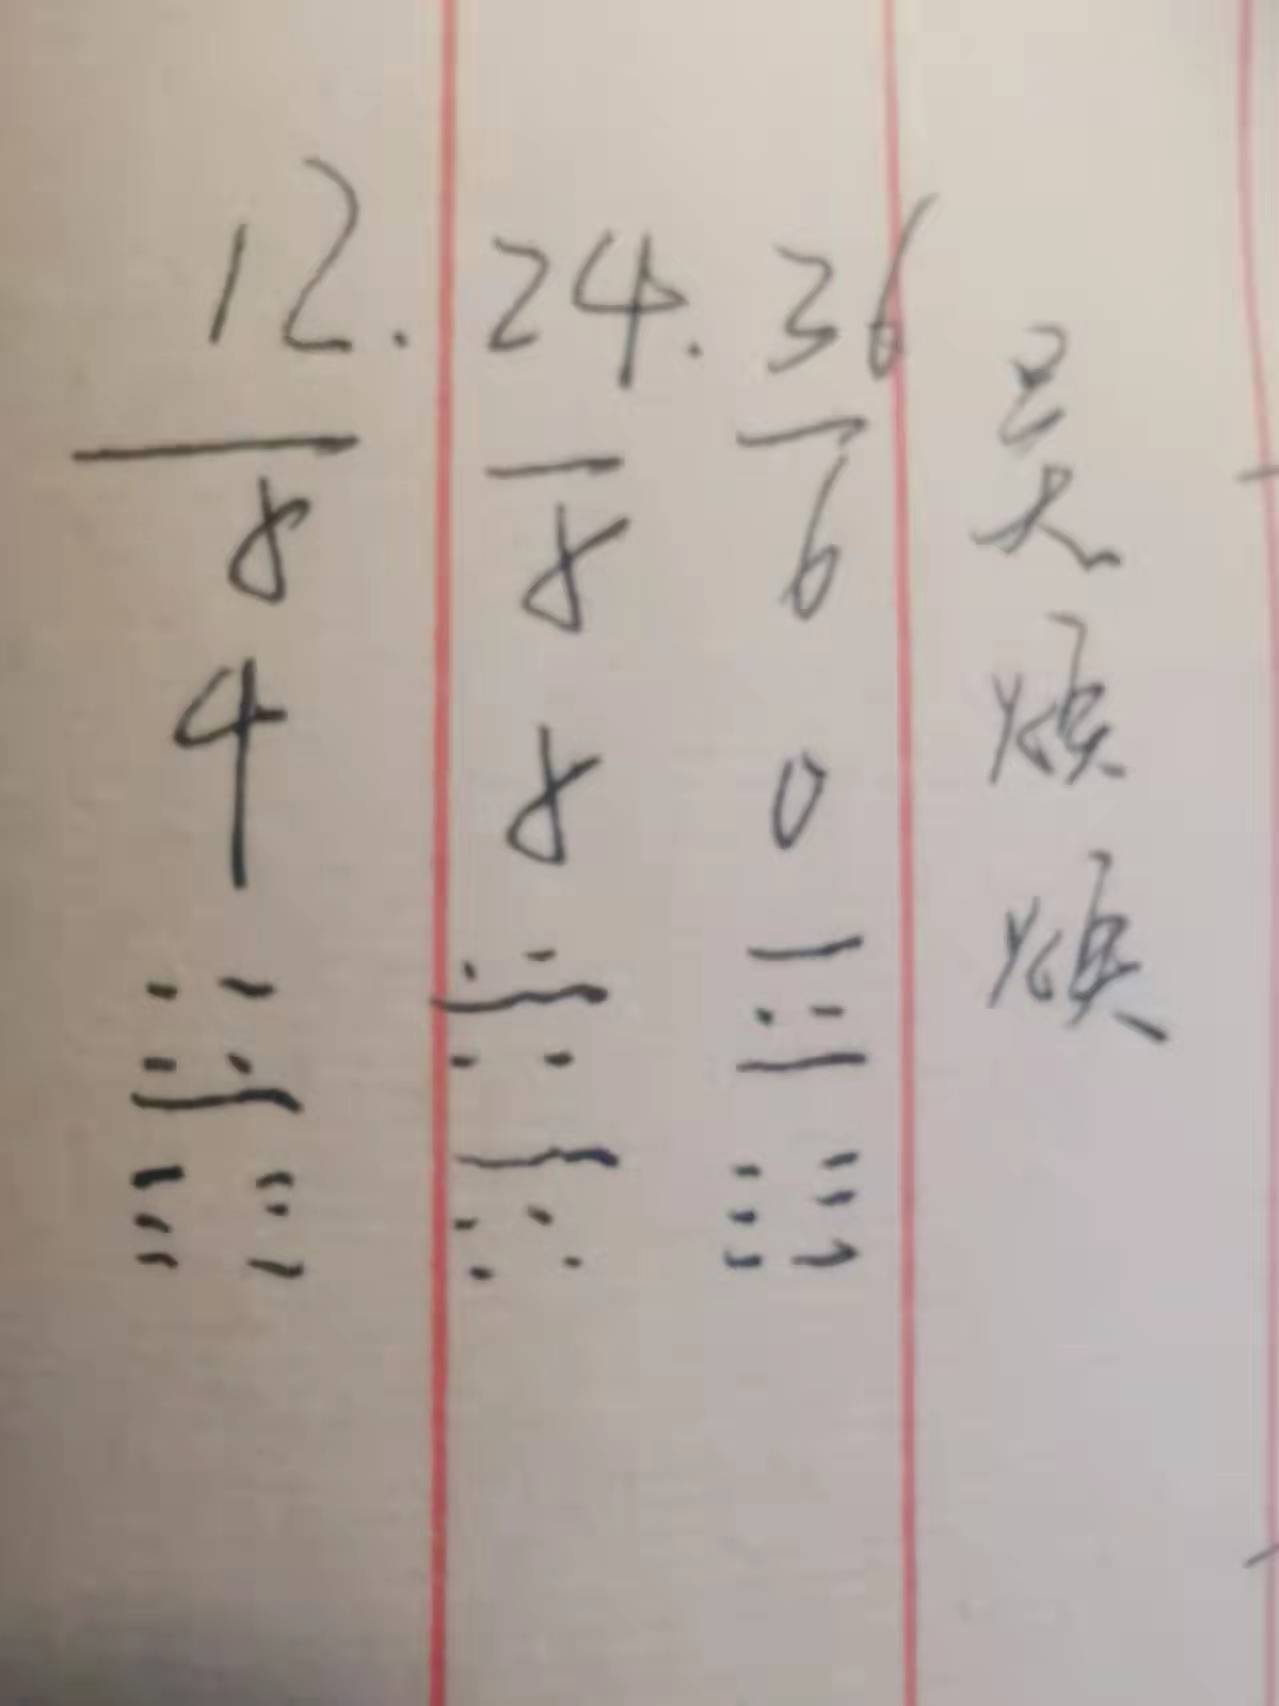 12. 24. 36
8 8 6
4 8 0
吴烦烦